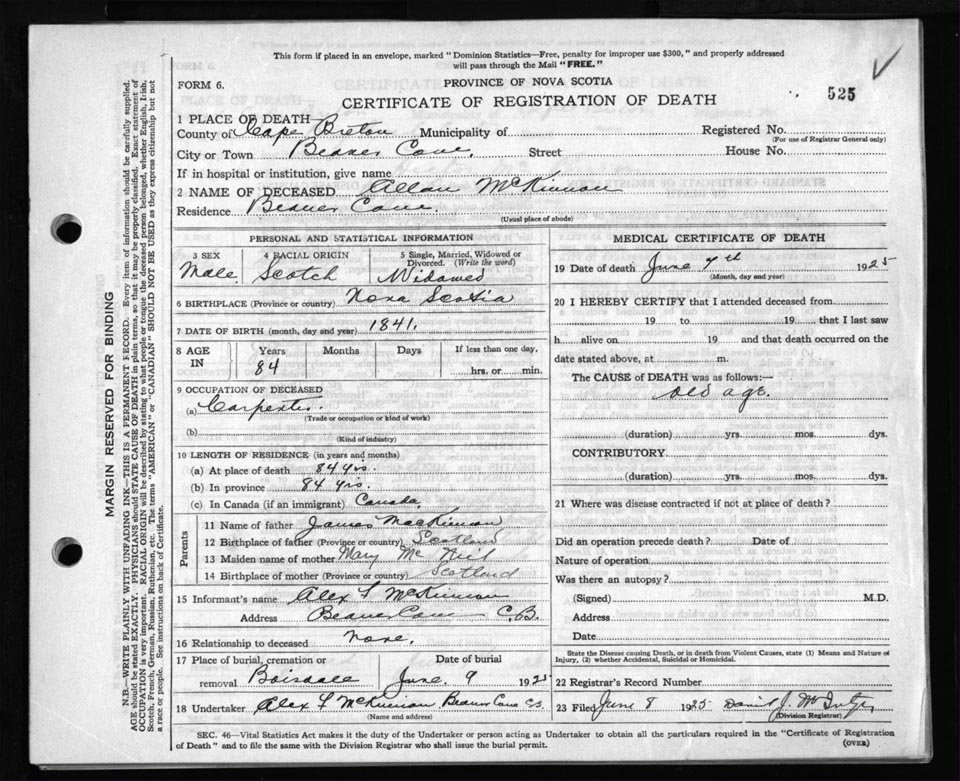 This form if placed in an envelope, marked "Dominion Statistics—Free, penalty for improper use $300," and properly addressed
will pass through the Mail "FREE."
FORM 6.
PROVINCE OF NOVA SCOTIA
525
CERTIFICATE OF REGISTRATION OF DEATH
1 PLACE OF DEATH
County of Cape Breton Municipality of Registered No.
(For use of Registrar General only)
City or Town Beaver Cove. Street House No.
If in hospital or institution, give name
2 NAME OF DECEASED Allan McKinnon
Residence Beaver Cove.
(Usual place of abode)
PERSONAL AND STATISTICAL INFORMATION
3 SEX 4 RACIAL ORIGIN 5 Single, Married, Widowed or
Divorced. (Write the word)
Male Scotch Widowed
6 BIRTHPLACE (Province or country) Nova Scotia
7 DATE OF BIRTH (month, day and year) 1841.
8 AGE IN Years Months Days If less than one day,
84 hrs. or min.
9 OCCUPATION OF DECEASED
(a) Carpenter.
(Trade or occupation or kind of work)
(b)
(Kind of industry)
10 LENGTH OF RESIDENCE (in years and months)
(a) At place of death 84 yrs.
(b) In province 84 yrs.
(c) In Canada (if an immigrant) Canada.
Parents
11 Name of father James MacKinnon
12 Birthplace of father (Province or country) Scotland
13 Maiden name of mother Mary McNeil
14 Birthplace of mother (Province or country) Scotland
15 Informant's name Alex McKinnon
Address Beaver Cove C.B.
16 Relationship to deceased None.
17 Place of burial, cremation or Date of burial
removal Boisdale June 9 1925
18 Undertaker Alex McKinnon Beaver Cove C.B.
(Name and address)
MEDICAL CERTIFICATE OF DEATH
19 Date of death June 7th 1925
(Month, day and year)
20 I HEREBY CERTIFY that I attended deceased from
19 to 19 that I last saw
h alive on 19 and that death occurred on the
date stated above, at m.
The CAUSE of DEATH was as follows:—
old age.
(duration) yrs. mos. dys.
CONTRIBUTORY
(duration) yrs. mos. dys.
21 Where was disease contracted if not at place of death?
Did an operation precede death? Date of
Nature of operation
Was there an autopsy?
(Signed) M.D.
Address
Date
State the Disease causing Death, or in death from Violent Causes, state (1) Means and Nature of
Injury, (2) whether Accidental, Suicidal or Homicidal.
22 Registrar's Record Number
23 Filed June 8 1925 J.
(Division Registrar)
SEC. 46—Vital Statistics Act makes it the duty of the Undertaker or person acting as Undertaker to obtain all the particulars required in the "Certificate of Registration
of Death" and to file the same with the Division Registrar who shall issue the burial permit.
(OVER)
MARGIN RESERVED FOR BINDING
N.B.—WRITE PLAINLY WITH UNFADING INK—THIS IS A PERMANENT RECORD. Every item of information should be carefully supplied.
AGE should be stated EXACTLY. PHYSICIANS should STATE CAUSE OF DEATH in plain terms, so that it may be properly classified. Exact statement of
OCCUPATION is very important. RACIAL ORIGIN will be described by stating to what people or tongue the deceased person belonged, whether English, Irish,
Scotch, French, German, Russian, Ruthenian, etc. The terms "AMERICAN" or "CANADIAN" SHOULD NOT BE USED as they express citizenship but not
a race or people. See instructions on back of Certificate.